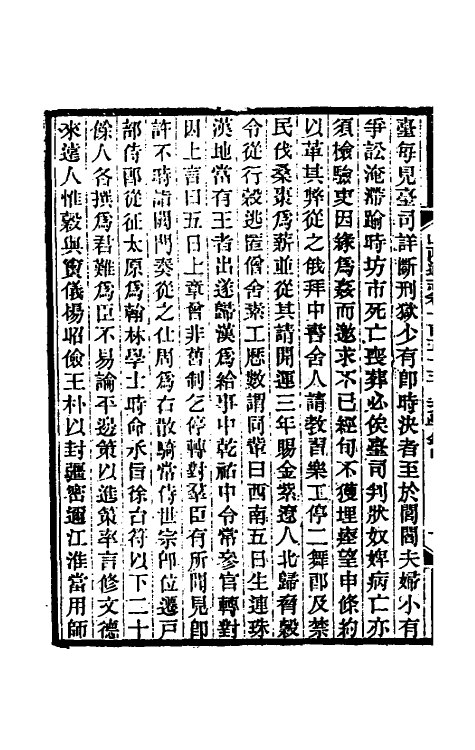 臺每見臺司詳斷刑獄少有卽時決者至於閭閻夫婦小有
爭訟淹滯踰時坊市死亡喪葬必俟臺司判狀奴婢病亡亦
須檢驗吏因緣爲姦而邀求不已經旬不獲埋瘞望申條約
以革其弊從之俄拜中書舍人請敎習樂工停二舞郎及禁
民伐桑棗爲薪並從其請開運三年賜金紫遼人北歸脅縠
令從行縠逃匿僧舍素工歷數謂同輩曰西南五日生連珠
漢地當有王者出遂歸漢爲給事中乾祐中令常參官轉對
因上言曰五日上章曾非舊制乞停轉對羣臣有所聞見卽
許不時請閤門奏從之仕周爲右散騎常侍世宗卽位遷戶
部侍郎從征太原爲翰林學士時命承旨徐台符以下二十
餘人各撰爲君難爲臣不易論平邊策以進策率言修文德
來遠人惟縠與竇儀楊昭儉王朴以封疆密邇江淮當用師